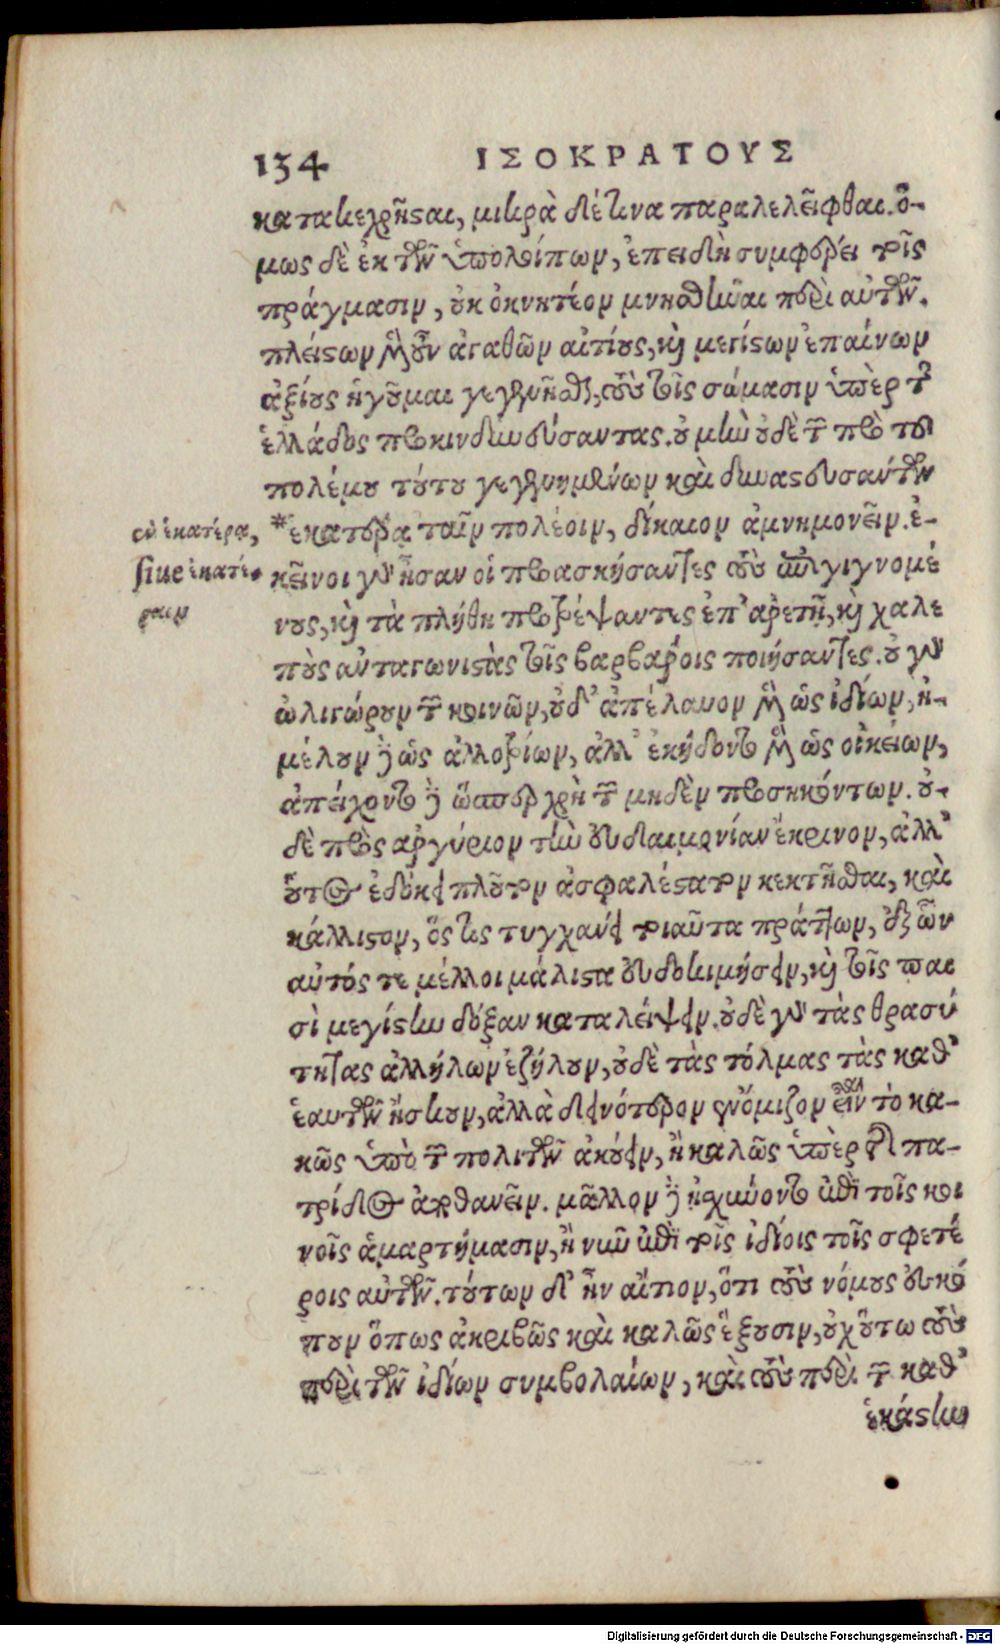 134 ΙΣΟΚΡΑΤΟΥΣ
κατακεχρῆσθαι, μικρὰ δέ τινα παραλελεῖφθαι. ὅ-
μως δὲ ἐκ τῶν ὑπολοίπων, ἐπειδὴ συμφέρει τοῖς
πράγμασιν, οὐκ ὀκνητέον μνησθῆναι περὶ αὐτῶν.
πλείστων μὲν οὖν ἀγαθῶν αἰτίους, καὶ μεγίστων ἐπαίνων
ἀξίους ἡγοῦμαι γεγενῆσθαι, τοὺς τοῖς σώμασιν ὑπὲρ τῆς
ἑλλάδος προκινδυνεύσαντας. οὐ μὴν οὐδὲ τῶν πρὸ τοῦ
πολέμου τούτου γεγενημένων καὶ δυναστευσάντων
*ἑκατέρα ταῖν πολέοιν, δίκαιον ἀμνημονεῖν. ἐ-
κεῖνοι γὰρ ἦσαν οἱ προασκήσαντες τοὺς ἐπιγιγνομέ
νους, καὶ τὰ πλήθη προτρέψαντες ἐπ' ἀρετῇ, καὶ χαλε
ποὺς ἀνταγωνιστὰς τοῖς βαρβάροις ποιήσαντες. οὐ γὰρ
ὠλιγώρουν τῶν κοινῶν, οὐδ' ἀπέλαυον μὲν ὡς ἰδίων, ἠ-
μέλουν δὲ ὡς ἀλλοτρίων, ἀλλ' ἐκήδοντο μὲν ὡς οἰκείων,
ἀπείχοντο δὲ ὥσπερ χρὴ τῶν μηδὲν προσηκόντων. οὐ-
δὲ πρὸς ἀργύριον τὴν εὐδαιμονίαν ἔκρινον, ἀλλ'
οὗτος ἐδόκει πλοῦτον ἀσφαλέστατον κεκτῆσθαι, καὶ
κάλλιστον, ὅστις τυγχάνει τοιαῦτα πράττων, ἐξ ὧν
αὐτός τε μέλλοι μάλιστα εὐδοκιμήσειν, καὶ τοῖς παι
σὶ μεγίστην δόξαν καταλείψειν. οὐδὲ γὰρ τὰς θρασύ
τητας ἀλλήλων ἐζήλουν, οὐδὲ τὰς τόλμας τὰς καθ'
ἑαυτῶν ἤσκουν, ἀλλὰ δεινότερον ἐνόμιζον εἶναι τὸ κα-
κῶς ὑπὸ τῶν πολιτῶν ἀκούειν, ἢ καλῶς ὑπὲρ τῆς πα-
τρίδος ἀποθανεῖν. μᾶλλον δὲ ᾐσχύνοντο ἐπὶ τοῖς κοι
νοῖς ἁμαρτήμασιν, ἢ νῦν ἐπὶ τοῖς ἰδίοις τοῖς σφετέ
ροις αὐτῶν. τούτων δ' ἦν αἴτιον, ὅτι τοὺς νόμους ἐσκό
πουν ὅπως ἀκριβῶς καὶ καλῶς ἕξουσιν, οὐχ οὕτω τοὺς
περὶ τῶν ἰδίων συμβολαίων, καὶ τοὺς περὶ τῶν καθ'
ἑκάστην
ἐν ἑκατέρα,
siue ἑκατέ-
ραιν
Digitalisierung gefördert durch die Deutsche Forschungsgemeinschaft - DFG